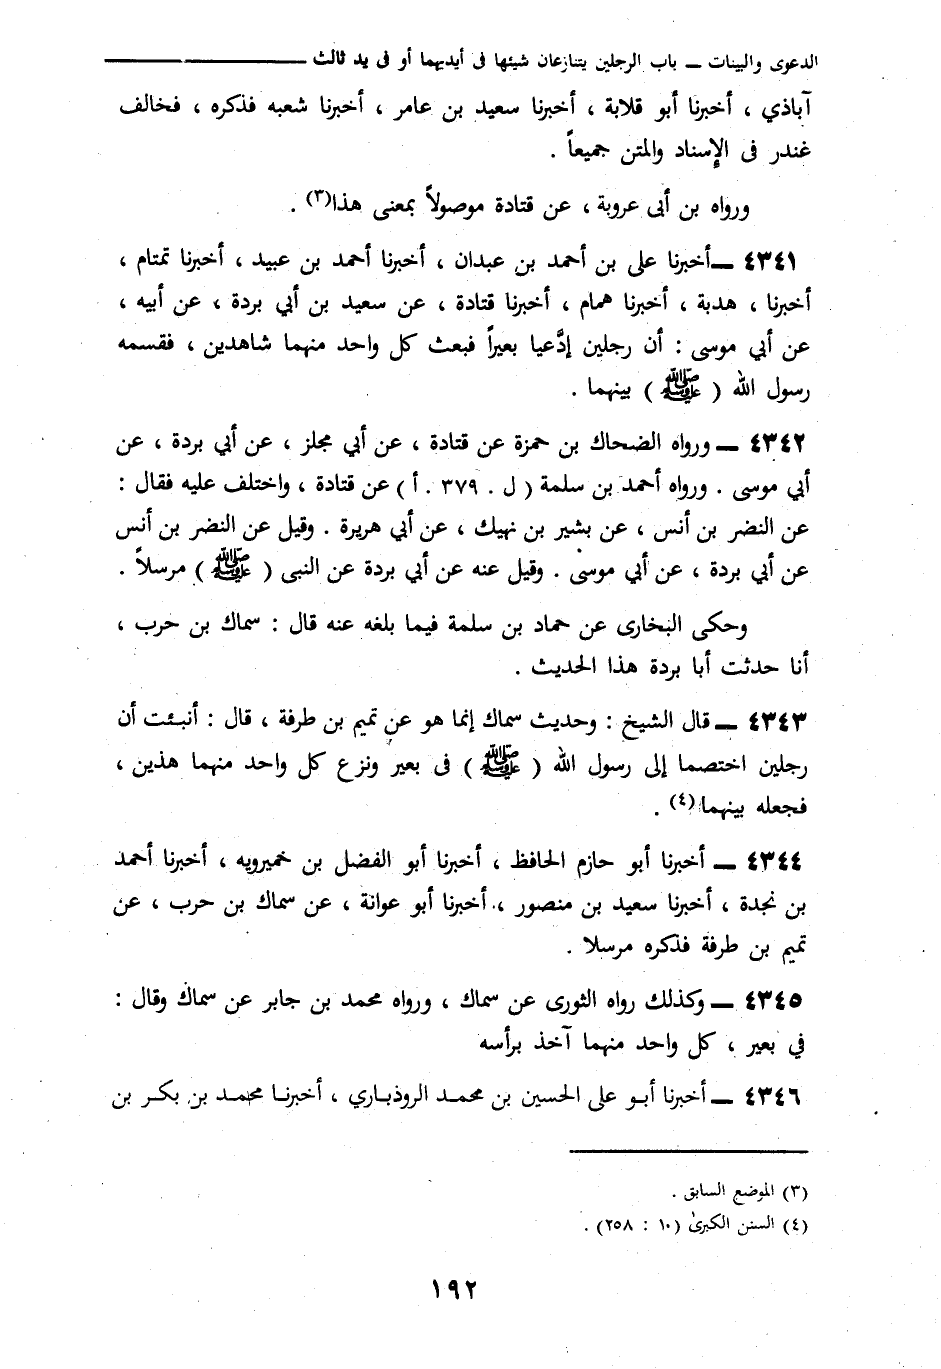 الدعوى والبينات ــ باب الرجلين يتنازعان شيئها فى أيديهما أو فى يد ثالث
آباذي ، أخبرنا أبو قلابة ، أخبرنا سعيد بن عامر ، أخبرنا شعبه فذكره ، فخالف
غندر فى الإسناد والمتن جميعاً .
ورواه بن أبى عروبة ، عن قتادة موصولاً بمعنى هذا(٣) .
٤٣٤١ ــ أخبرنا على بن أحمد بن عبدان ، أخبرنا أحمد بن عبيد ، أخبرنا تمتام ،
أخبرنا ، هدبة ، أخبرنا همام ، أخبرنا قتادة ، عن سعيد بن أبي بردة ، عن أبيه ،
عن أبي موسى : أن رجلين إدَّعيا بعيراً فبعث كل واحد منهما شاهدين ، فقسمه
رسول الله ( ﷺ ) بينهما .
٤٣٤٢ ــ ورواه الضحاك بن حمزة عن قتادة ، عن أبي مجلز ، عن أبي بردة ، عن
أبي موسى . ورواه أحمد بن سلمة ( ل . ٣٧٩ . أ ) عن قتادة ، واختلف عليه فقال :
عن النضر بن أنس ، عن بشير بن نهيك ، عن أبي هريرة . وقيل عن النضر بن أنس
عن أبي بردة ، عن أبي موسى . وقيل عنه عن أبي بردة عن النبى ( ﷺ ) مرسلاً .
وحكى البخارى عن حماد بن سلمة فيما بلغه عنه قال : سماك بن حرب ،
أنا حدثت أبا بردة هذا الحديث .
٤٣٤٣ ــ قال الشيخ : وحديث سماك إنما هو عن تميم بن طرفة ، قال : أنبئت أن
رجلين اختصما إلى رسول الله ( ﷺ ) فى بعير ونزع كل واحد منهما هذين ،
فجعله بينهما(٤) .
٤٣٤٤ ــ أخبرنا أبو حازم الحافظ ، أخبرنا أبو الفضل بن خميرويه ، أخبرنا أحمد
بن نجدة ، أخبرنا سعيد بن منصور ، أخبرنا أبو عوانة ، عن سماك بن حرب ، عن
تميم بن طرفة فذكره مرسلا .
٤٣٤٥ ــ وكذلك رواه الثورى عن سماك ، ورواه محمد بن جابر عن سماك وقال :
في بعير ، كل واحد منهما آخذ برأسه
٤٣٤٦ ــ أخبرنا أبـو على الحسين بن محمـد الروذبـاري ، أخبرنـا محمـد بن بكـر بن
(٣) الموضع السابق .
(٤) السنن الكبرىٰ (١٠ : ٢٥٨) .
١٩٢